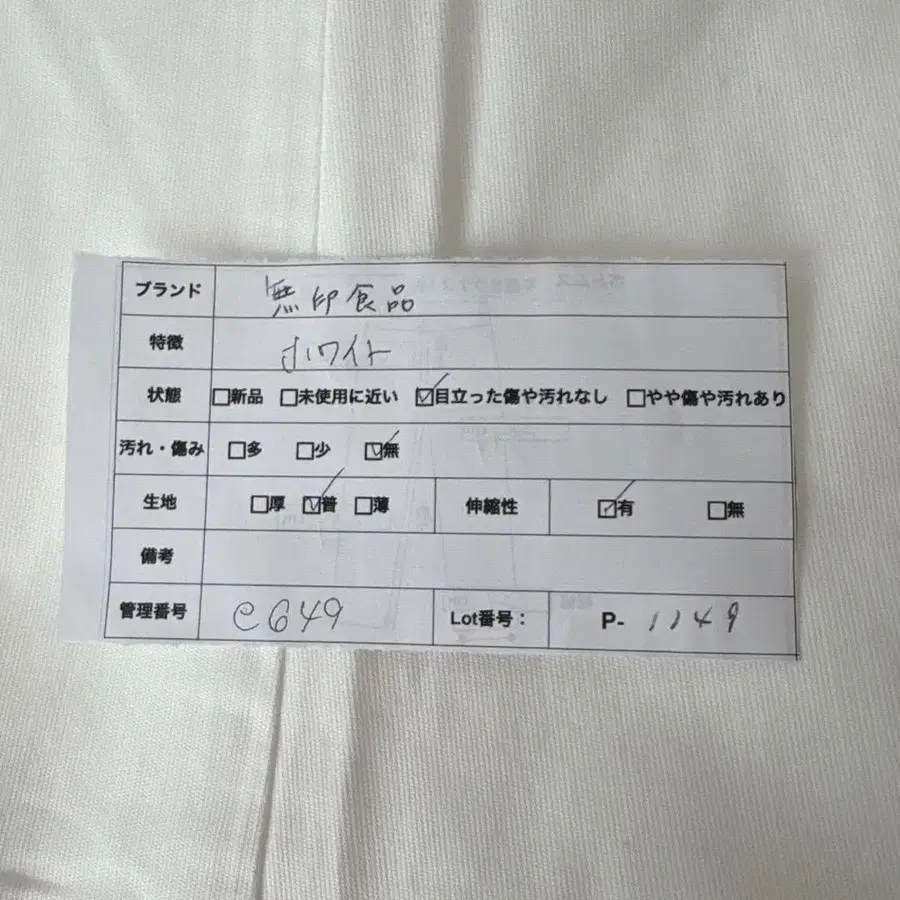 ブランド 無印食品
特徴 ホワイト
状態 □新品 □未使用に近い ☑目立った傷や汚れなし □やや傷や汚れあり
汚れ・傷み □多 □少 ☑無
生地 □厚 ☑普 □薄 伸縮性 ☑有 □無
備考
管理番号 C649 Lot番号： P- 1149